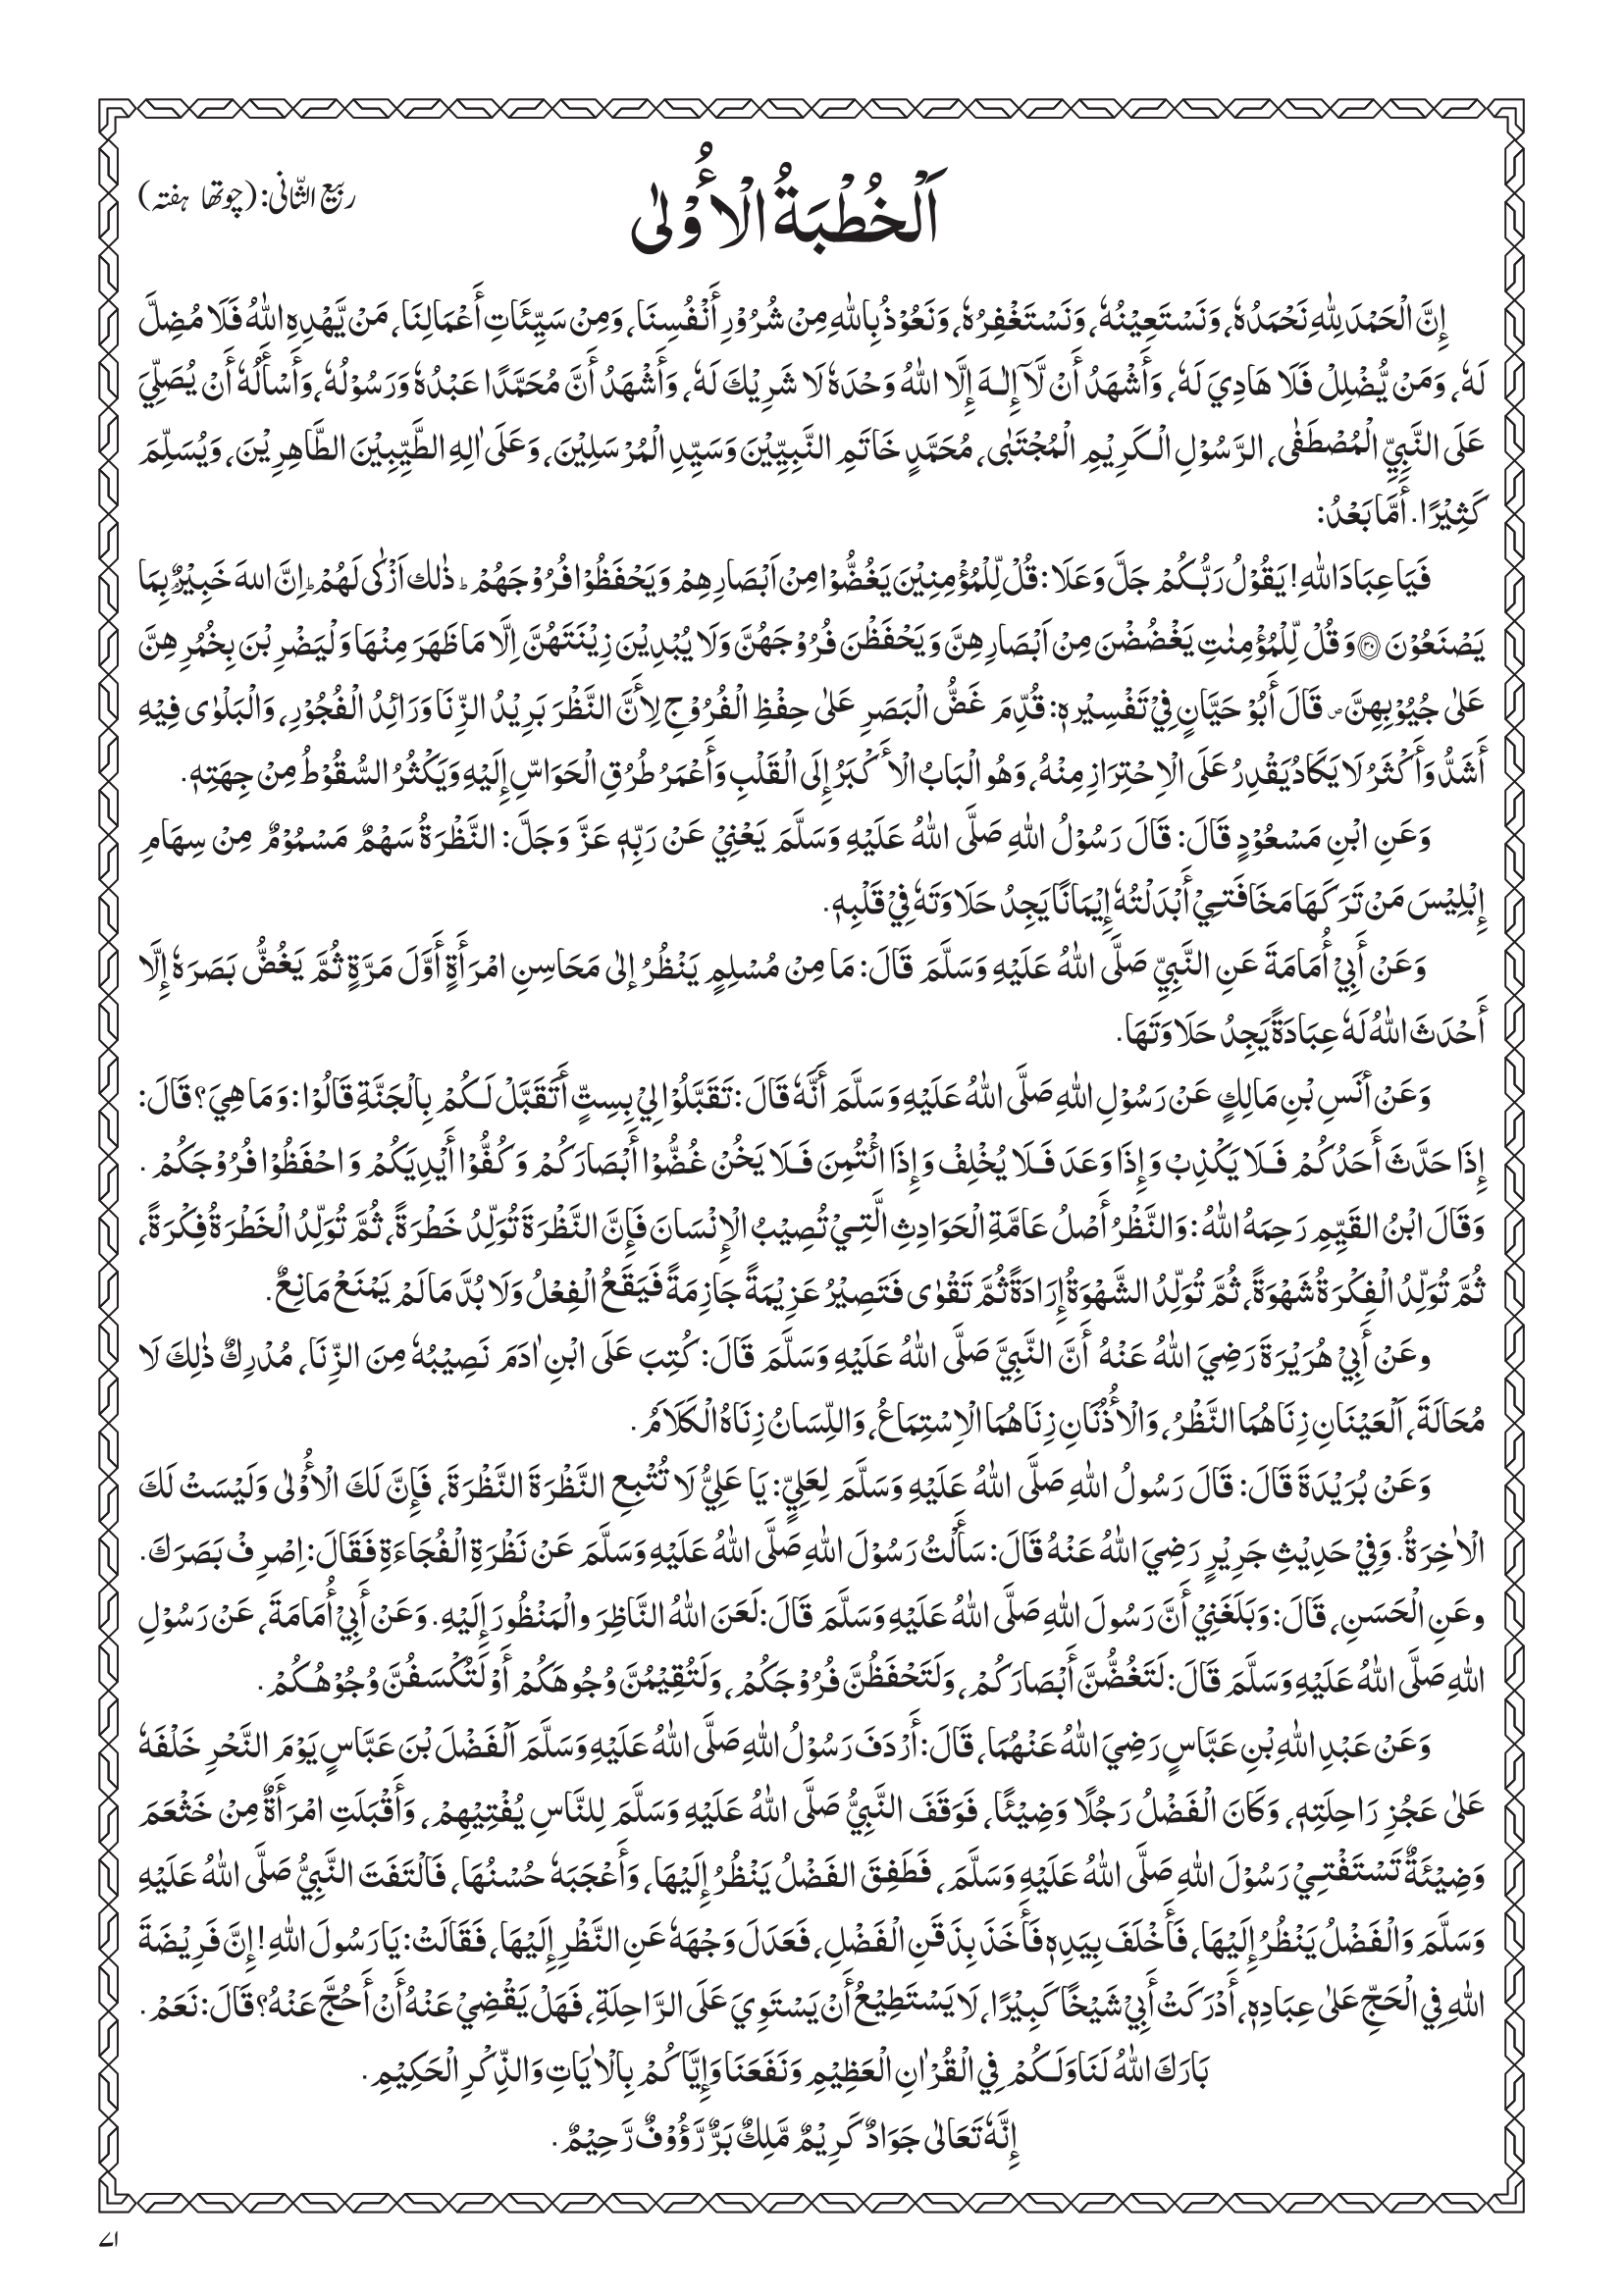 ربیع الثّانی: (چوتھا ہفتہ)
اَلْخُطْبَةُ الْأُوْلٰى
إِنَّ الْحَمْدَ لِلّٰهِ نَحْمَدُهٗ، وَنَسْتَعِيْنُهٗ، وَنَسْتَغْفِرُهٗ، وَنَعُوْذُ بِاللّٰهِ مِنْ شُرُوْرِ أَنْفُسِنَا، وَمِنْ سَيِّئَاتِ أَعْمَالِنَا، مَنْ يَّهْدِهِ اللّٰهُ فَلَا مُضِلَّ
لَهٗ، وَمَنْ يُّضْلِلْ فَلَا هَادِيَ لَهٗ، وَأَشْهَدُ أَنْ لَّآ إِلٰـهَ إِلَّا اللّٰهُ وَحْدَهٗ لَا شَرِيْكَ لَهٗ، وَأَشْهَدُ أَنَّ مُحَمَّدًا عَبْدُهٗ وَرَسُوْلُهٗ، وَأَسْأَلُهٗ أَنْ يُصَلِّيَ
عَلَى النَّبِيِّ الْمُصْطَفٰى، الرَّسُوْلِ الْـكَرِيْمِ الْمُجْتَبٰى، مُحَمَّدٍ خَاتَمِ النَّبِيِّيْنَ وَسَيِّدِ الْمُرْسَلِيْنَ، وَعَلَى اٰلِهِ الطَّيِّبِيْنَ الطَّاهِرِيْنَ، وَيُسَلِّمَ
كَثِيْرًا. أَمَّا بَعْدُ:
فَيَا عِبَادَ اللّٰهِ! يَقُوْلُ رَبُّـكُمْ جَلَّ وَعَلَا: قُلْ لِّلْمُؤْمِنِيْنَ يَغُضُّوْا مِنْ اَبْصَارِهِمْ وَيَحْفَظُوْا فُرُوْجَهُمْ ؕ ذٰلك اَزْكٰى لَهُمْ ؕ اِنَّ اللهَ خَبِيْرٌۢ بِمَا
يَصْنَعُوْنَ ۝٣٠ وَقُلْ لِّلْمُؤْمِنٰتِ يَغْضُضْنَ مِنْ اَبْصَارِهِنَّ وَيَحْفَظْنَ فُرُوْجَهُنَّ وَلَا يُبْدِيْنَ زِيْنَتَهُنَّ اِلَّا مَا ظَهَرَ مِنْهَا وَلْيَضْرِبْنَ بِخُمُرِهِنَّ
عَلٰى جُيُوْبِهِنَّ ۪ قَالَ أَبُوْ حَيَّانٍ فِيْ تَفْسِيْرِهٖ: قُدِّمَ غَضُّ الْبَصَرِ عَلٰى حِفْظِ الْفُرُوْجِ لِأَنَّ النَّظْرَ بَرِيْدُ الزِّنَا وَرَائِدُ الْفُجُوْرِ، وَالْبَلْوٰى فِيْهِ
أَشَدُّ وَأَكْثَرُ لَا يَكَادُ يَقْدِرُ عَلَى الْاِحْتِرَازِ مِنْهُ، وَهُو الْبَابُ الْأَكْبَرُ إِلَى الْقَلْبِ وَأَعْمَرُ طُرُقِ الْحَوَاسِّ إِلَيْهِ وَيَكْثُرُ السُّقُوْطُ مِنْ جِهَتِهٖ.
وَعَنِ ابْنِ مَسْعُوْدٍ قَالَ: قَالَ رَسُوْلُ اللّٰهِ صَلَّى اللّٰهُ عَلَيْهِ وَسَلَّمَ يَعْنِيْ عَنْ رَبِّهٖ عَزَّ وَجَلَّ: النَّظْرَةُ سَهْمٌ مَسْمُوْمٌ مِنْ سِهَامِ
إِبْلِيْسَ مَنْ تَرَكَهَا مَخَافَتِـيْ أَبْدَلْتُهٗ إِيْمَانًا يَجِدُ حَلَاوَتَهٗ فِيْ قَلْبِهٖ.
وَعَنْ أَبِيْ أُمَامَةَ عَنِ النَّبِيِّ صَلَّى اللّٰهُ عَلَيْهِ وَسَلَّمَ قَالَ: مَا مِنْ مُسْلِمٍ يَنْظُرُ إلىٰ مَحَاسِنِ امْرَأَةٍ أَوَّلَ مَرَّةٍ ثُمَّ يَغُضُّ بَصَرَهٗ إِلَّا
أَحْدَثَ اللّٰهُ لَهٗ عِبَادَةً يَجِدُ حَلَاوَتَهَا.
وَعَنْ أَنَسِ بْنِ مَالِكٍ عَنْ رَسُوْلِ اللّٰهِ صَلَّى اللّٰهُ عَلَيْهِ وَسَلَّمَ أَنَّهٗ قَالَ: تَقَبَّلُوْا لِيْ بِسِتٍّ أَتَقَبَّلْ لَـكُمْ بِالْجَنَّةِ قَالُوْا: وَمَا هِيَ؟ قَالَ:
إِذَا حَدَّثَ أَحَدُكُمْ فَـلَا يَكْذِبْ وَإِذَا وَعَدَ فَـلَا يُخْلِفْ وَإِذَا ائْتُمِنَ فَـلَا يَخُنْ غُضُّوْا أَبْصَارَكُمْ وَكُفُّوْا أَيْدِيَكُمْ وَاحْفَظُوْا فُرُوْجَكُمْ .
وَقَالَ ابْنُ القَيِّمِ رَحِمَهُ اللّٰهُ: وَالنَّظْرُ أَصْلُ عَامَّةِ الْحَوَادِثِ الَّتِـيْ تُصِيْبُ الْإِنْسَانَ فَإِنَّ النَّظْرَةَ تُوَلِّدُ خَطْرَةً، ثُمَّ تُوَلِّدُ الْخَطْرَةُ فِكْرَةً،
ثُمَّ تُوَلِّدُ الْفِكْرَةُ شَهْوَةً، ثُمَّ تُوَلِّدُ الشَّهْوَةُ إِرَادَةً ثُمَّ تَقْوٰى فَتَصِيْرُ عَزِيْمَةً جَازِمَةً فَيَقَعُ الْفِعْلُ وَلَا بُدَّ مَا لَمْ يَمْنَعْ مَانِعٌ.
وعَنْ أَبِيْ هُرَيْرَةَ رَضِيَ اللّٰهُ عَنْهُ أَنَّ النَّبِيَّ صَلَّى اللّٰهُ عَلَيْهِ وَسَلَّمَ قَالَ: كُتِبَ عَلَى ابْنِ اٰدَمَ نَصِيْبُهٗ مِنَ الزِّنَا، مُدْرِكٌ ذٰلِكَ لَا
مُحَالَةَ، اَلْعَيْنَانِ زِنَاهُمَا النَّظْرُ، وَالْأُذُنَانِ زِنَاهُمَا الْاِسْتِمَاعُ، وَاللِّسَانُ زِنَاهُ الْكَلَامُ.
وَعَنْ بُرَيْدَةَ قَالَ: قَالَ رَسُولُ اللّٰهِ صَلَّى اللّٰهُ عَلَيْهِ وَسَلَّمَ لِعَلِيٍّ: يَا عَلِيُّ لَا تُتْبِعِ النَّظْرَةَ النَّظْرَةَ، فَإِنَّ لَكَ الْأُوْلٰى وَلَيْسَتْ لَكَ
الْاٰخِرَةُ. وَفِيْ حَدِيْثِ جَرِيْرٍ رَضِيَ اللّٰهُ عَنْهُ قَالَ: سَأَلْتُ رَسُوْلَ اللّٰهِ صَلَّى اللّٰهُ عَلَيْهِ وَسَلَّمَ عَنْ نَظْرَةِ الْفُجَاءَةِ فَقَالَ: اِصْرِفْ بَصَرَكَ.
وعَنِ الْحَسَنِ، قَالَ: وَبَلَغَنِيْ أَنَّ رَسُولَ اللّٰهِ صَلَّى اللّٰهُ عَلَيْهِ وَسَلَّمَ قَالَ: لَعَنَ اللّٰهُ النَّاظِرَ والْمَنْظُورَ إِلَيْهِ. وَعَنْ أَبِيْ أُمَامَةَ، عَنْ رَسُوْلِ
اللّٰهِ صَلَّى اللّٰهُ عَلَيْهِ وَسَلَّمَ قَالَ: لَتَغُضُّنَّ أَبْصَارَكُمْ، وَلَتَحْفَظُنَّ فُرُوْجَكُمْ، وَلَتُقِيْمُنَّ وُجُوهَكُمْ أَوْ لَتُكْسَفُنَّ وُجُوْهُـكُمْ.
وَعَنْ عَبْدِ اللّٰهِ بْنِ عَبَّاسٍ رَضِيَ اللّٰهُ عَنْهُمَا، قَالَ: أَرْدَفَ رَسُوْلُ اللّٰهِ صَلَّى اللّٰهُ عَلَيْهِ وَسَلَّمَ اَلْفَضْلَ بْنَ عَبَّاسٍ يَوْمَ النَّحْرِ خَلْفَهٗ
عَلٰى عَجُزِ رَاحِلَتِهٖ، وَكَانَ الْفَضْلُ رَجُلًا وَضِيْئًا، فَوَقَفَ النَّبِيُّ صَلَّى اللّٰهُ عَلَيْهِ وَسَلَّمَ لِلنَّاسِ يُفْتِيْهِمْ، وَأَقْبَلَتِ امْرَأَةٌ مِنْ خَثْعَمَ
وَضِيْئَةٌ تَسْتَفْتِـيْ رَسُوْلَ اللّٰهِ صَلَّى اللّٰهُ عَلَيْهِ وَسَلَّمَ، فَطَفِقَ الفَضْلُ يَنْظُرُ إِلَيْهَا، وَأَعْجَبَهٗ حُسْنُهَا، فَالْتَفَتَ النَّبِيُّ صَلَّى اللّٰهُ عَلَيْهِ
وَسَلَّمَ وَالْفَضْلُ يَنْظُرُ إِلَيْهَا، فَأَخْلَفَ بِيَدِهٖ فَأَخَذَ بِذَقَنِ الْفَضْلِ، فَعَدَلَ وَجْهَهٗ عَنِ النَّظْرِ إِلَيْهَا، فَقَالَتْ: يَا رَسُولَ اللّٰهِ! إِنَّ فَرِيْضَةَ
اللّٰهِ فِي الْحَجِّ عَلٰى عِبَادِهٖ، أَدْرَكَتْ أَبِيْ شَيْخًا كَبِيْرًا، لَا يَسْتَطِيْعُ أَنْ يَسْتَوِيَ عَلَى الرَّاحِلَةِ، فَهَلْ يَقْضِيْ عَنْهُ أَنْ أَحُجَّ عَنْهُ؟ قَالَ: نَعَمْ.
بَارَكَ اللّٰهُ لَنَا وَلَـكُمْ فِي الْقُرْاٰنِ الْعَظِيْمِ وَنَفَعَنَا وَإِيَّاكُمْ بِالْاٰيَاتِ وَالذِّكْرِ الْحَكِيْمِ.
إِنَّهٗ تَعَالٰى جَوَادٌ كَرِيْمٌ مَّلِكٌ بَرٌّ رَّؤُوْفٌ رَّحِيْمٌ.
۷۱